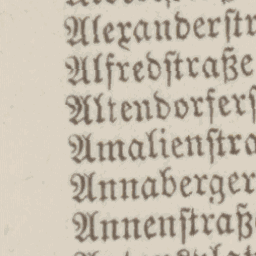 Alexanderſtr
Alfredſtraße
Altendorferſ
Amalienſtra
Annaberger
Annenſtraß